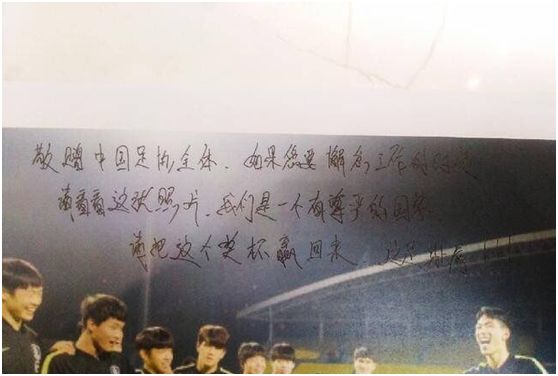 敬赠中国足协全体．如果您要懈怠工作的时候
请看看这张照片．我们是一个有尊严的国家
请把这个奖杯赢回来．这是